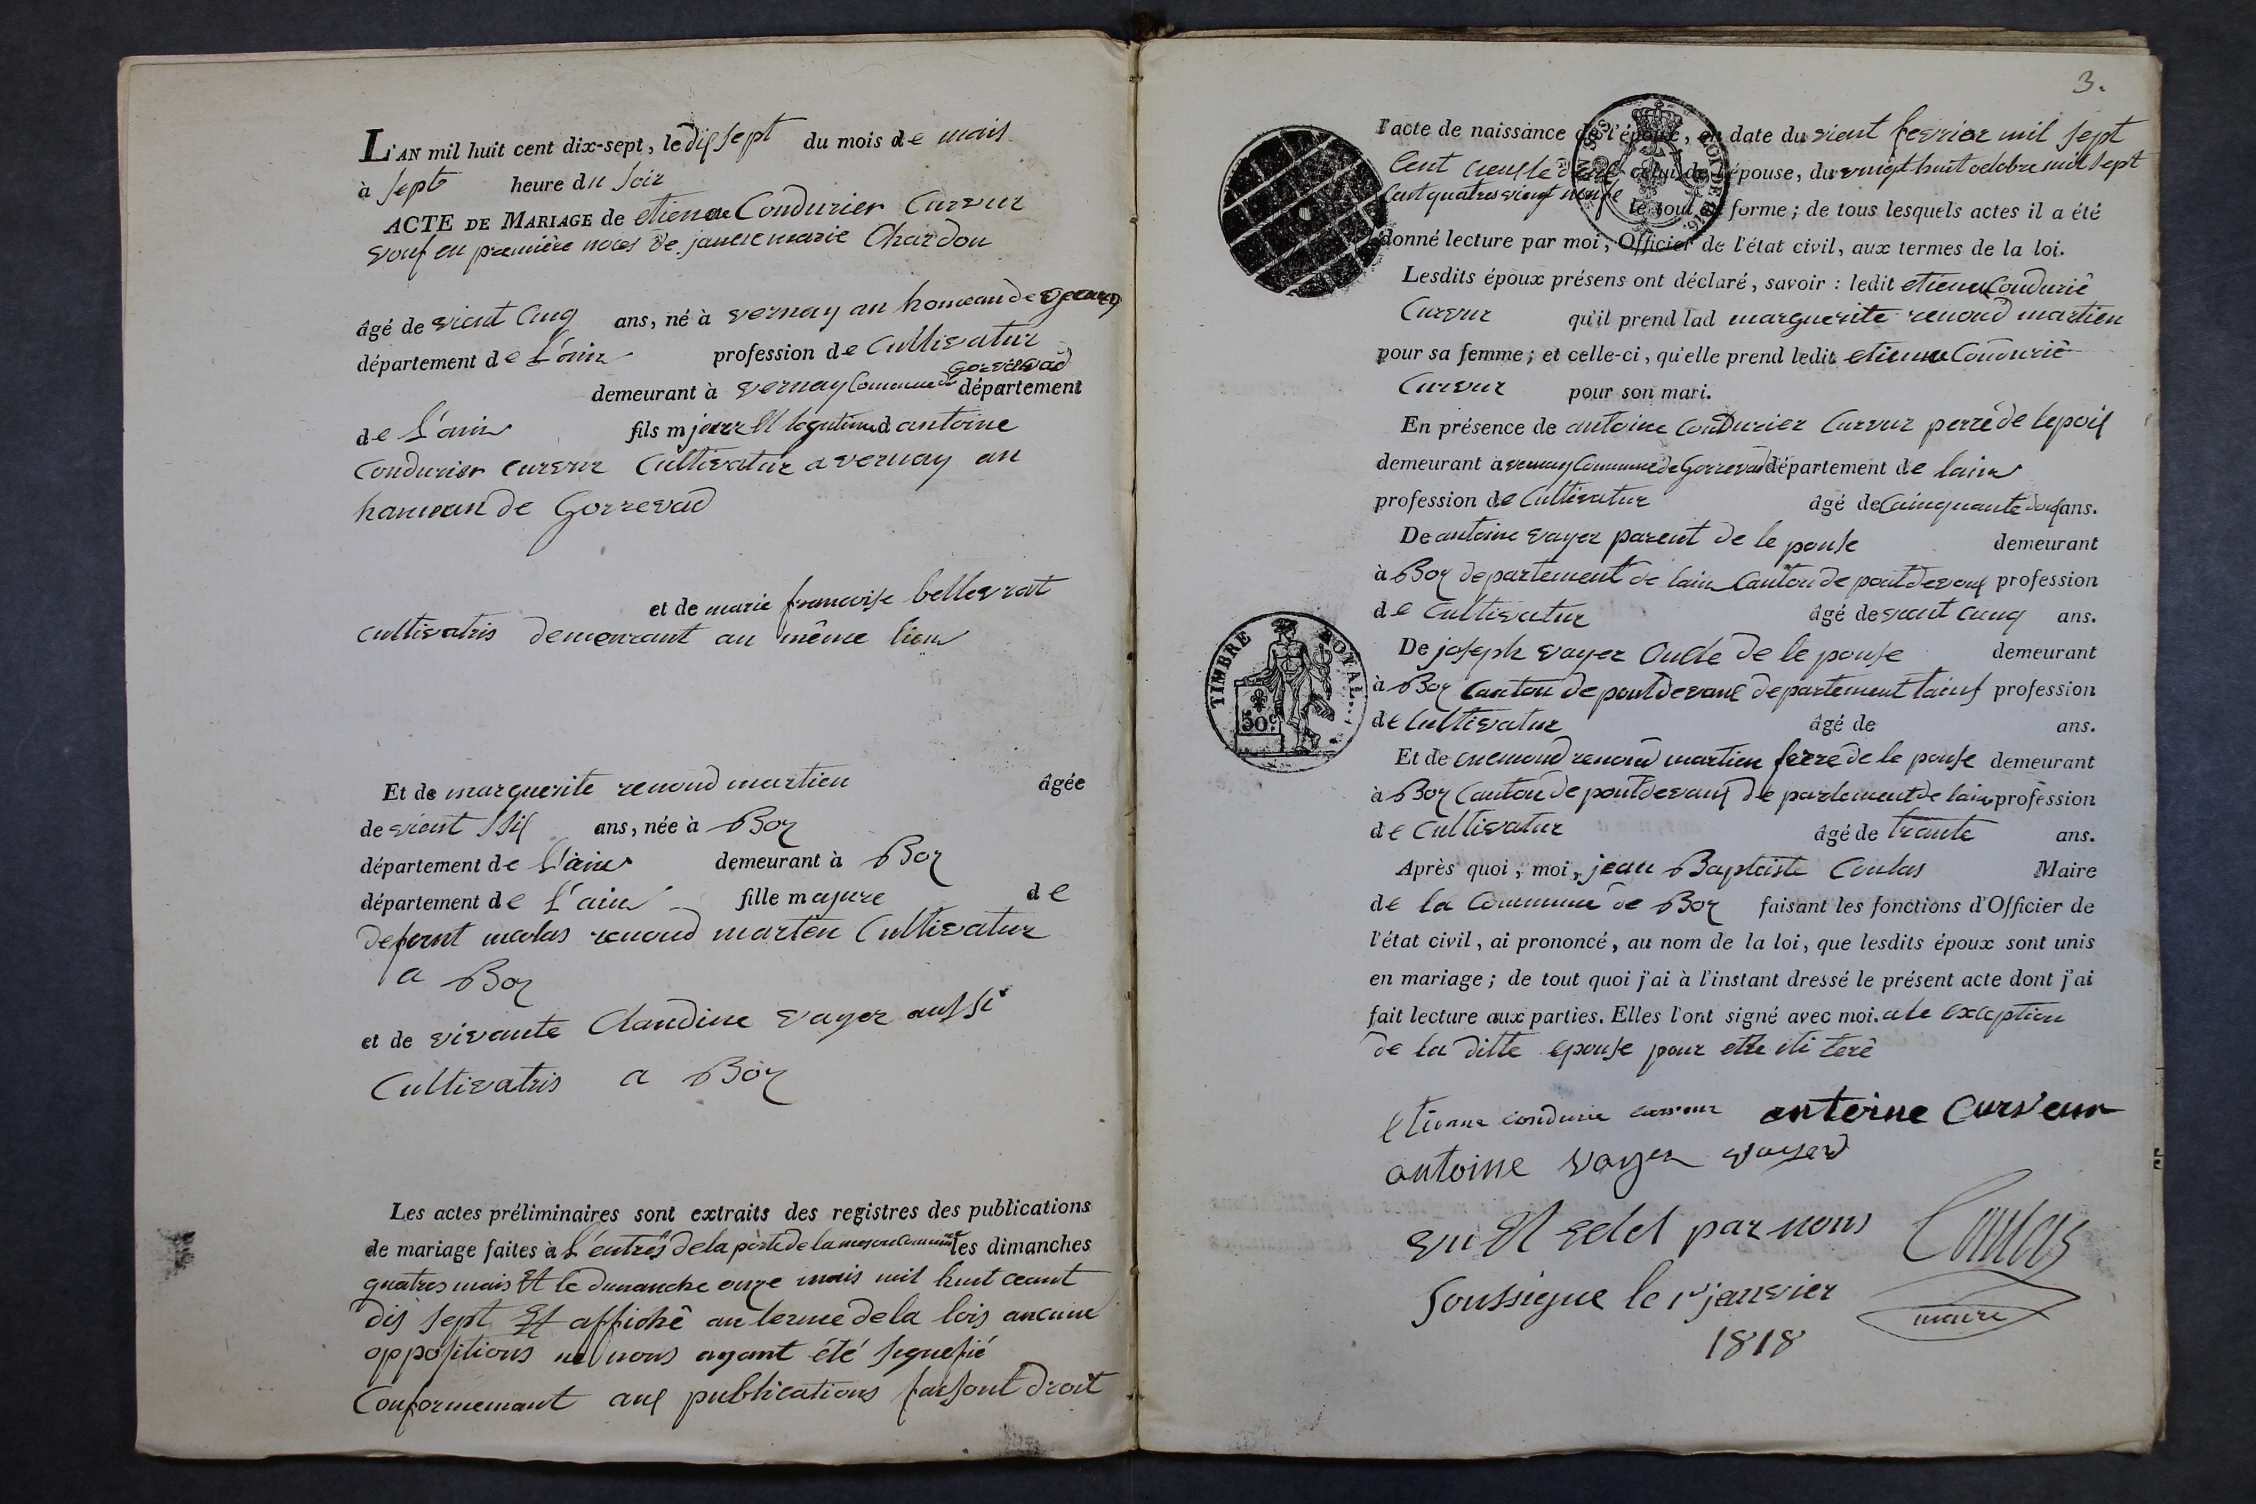 L'AN mil huit cent dix-sept, le dix sept du mois de mais
à sept heure du soir
ACTE DE MARIAGE de etienne Condurier Curveur
vouf en première noces de janne marie Chardon
âgé de vient cinq ans, né à vernay au homeau de
département de L'ain profession de Cultivatur
Gorrévod
demeurant à vernay Commune de département
de L'ain fils mjeure Et legutime d antoine
Condurier curveur Cultivatur a vernay au
hameau de Gorrevod
et de marie francoise bellevrat
cultivatris demeurant au même lieu
Et de marguerite renoud martien âgée
de vient ssix ans, née à Boz
département de L'ain demeurant à Boz
département de L'ain fille majure de
defernt nicolas renoud marten Cultivatur
a Boz
et de vivante Claudine vayer aussi
Cultivatris a Boz
Les actes préliminaires sont extraits des registres des publications
de mariage faites à L'entrés de la porte de la meson Commune les dimanches
quatres mais Et le dimanche onze mais mil huit ceant
dis sept Et affiché au terme de la lois aucune
oppositions ne nous ayant été seguefié
Conformemant aux publications faisont droit
3.
l'acte de naissance de l'époux, en date du vient fevrier mil sept
Cent celui de l'épouse, du vingt huit octobre mil sept
Cent quatres vient le tout en forme; de tous lesquels actes il a été
donné lecture par moi, Officier de l'état civil, aux termes de la loi.
Lesdits époux présens ont déclaré, savoir : ledit etienne Condurié
Curveur qu'il prend lad marguerite renoud martien
pour sa femme; et celle-ci, qu'elle prend ledit etienne Condurié
Curveur pour son mari.
En présence de antoine Condurier Curveur perre de lepoix
demeurant a vernay Commune de Gorrevod département de lain
profession de Cultivatur âgé de Cainquante doux ans.
De antoine vayer parent de le pouse demeurant
à Boz departement de lain Canton de pontdevaux profession
de Cultivatur âgé de vaint cinq ans.
De joseph vayer oncle de le pouse demeurant
à Boz Canton de pontdevaux departement lain profession
de Cultivatur âgé de ans.
Et de enemond renoud martien ferre de le pouse demeurant
à Boz Canton de pontdevaux de partement de lain profession
de Cultivatur âgé de trante ans.
Après quoi, moi, jean Baptiste Coulas Maire
de la Commune de Boz faisant les fonctions d'Officier de
l'état civil, ai prononcé, au nom de la loi, que lesdits époux sont unis
en mariage; de tout quoi j'ai à l'instant dressé le présent acte dont j'ai
fait lecture aux parties. Elles l'ont signé avec moi. a le exception
de la ditte epouse pour etre ili teré
etienne condurie curveur antoine Curveur
antoine vayer vayer
vu Et par nous Coulas
soussigne le 1er janvier maire
1818
TIMBRE ROYAL
50c